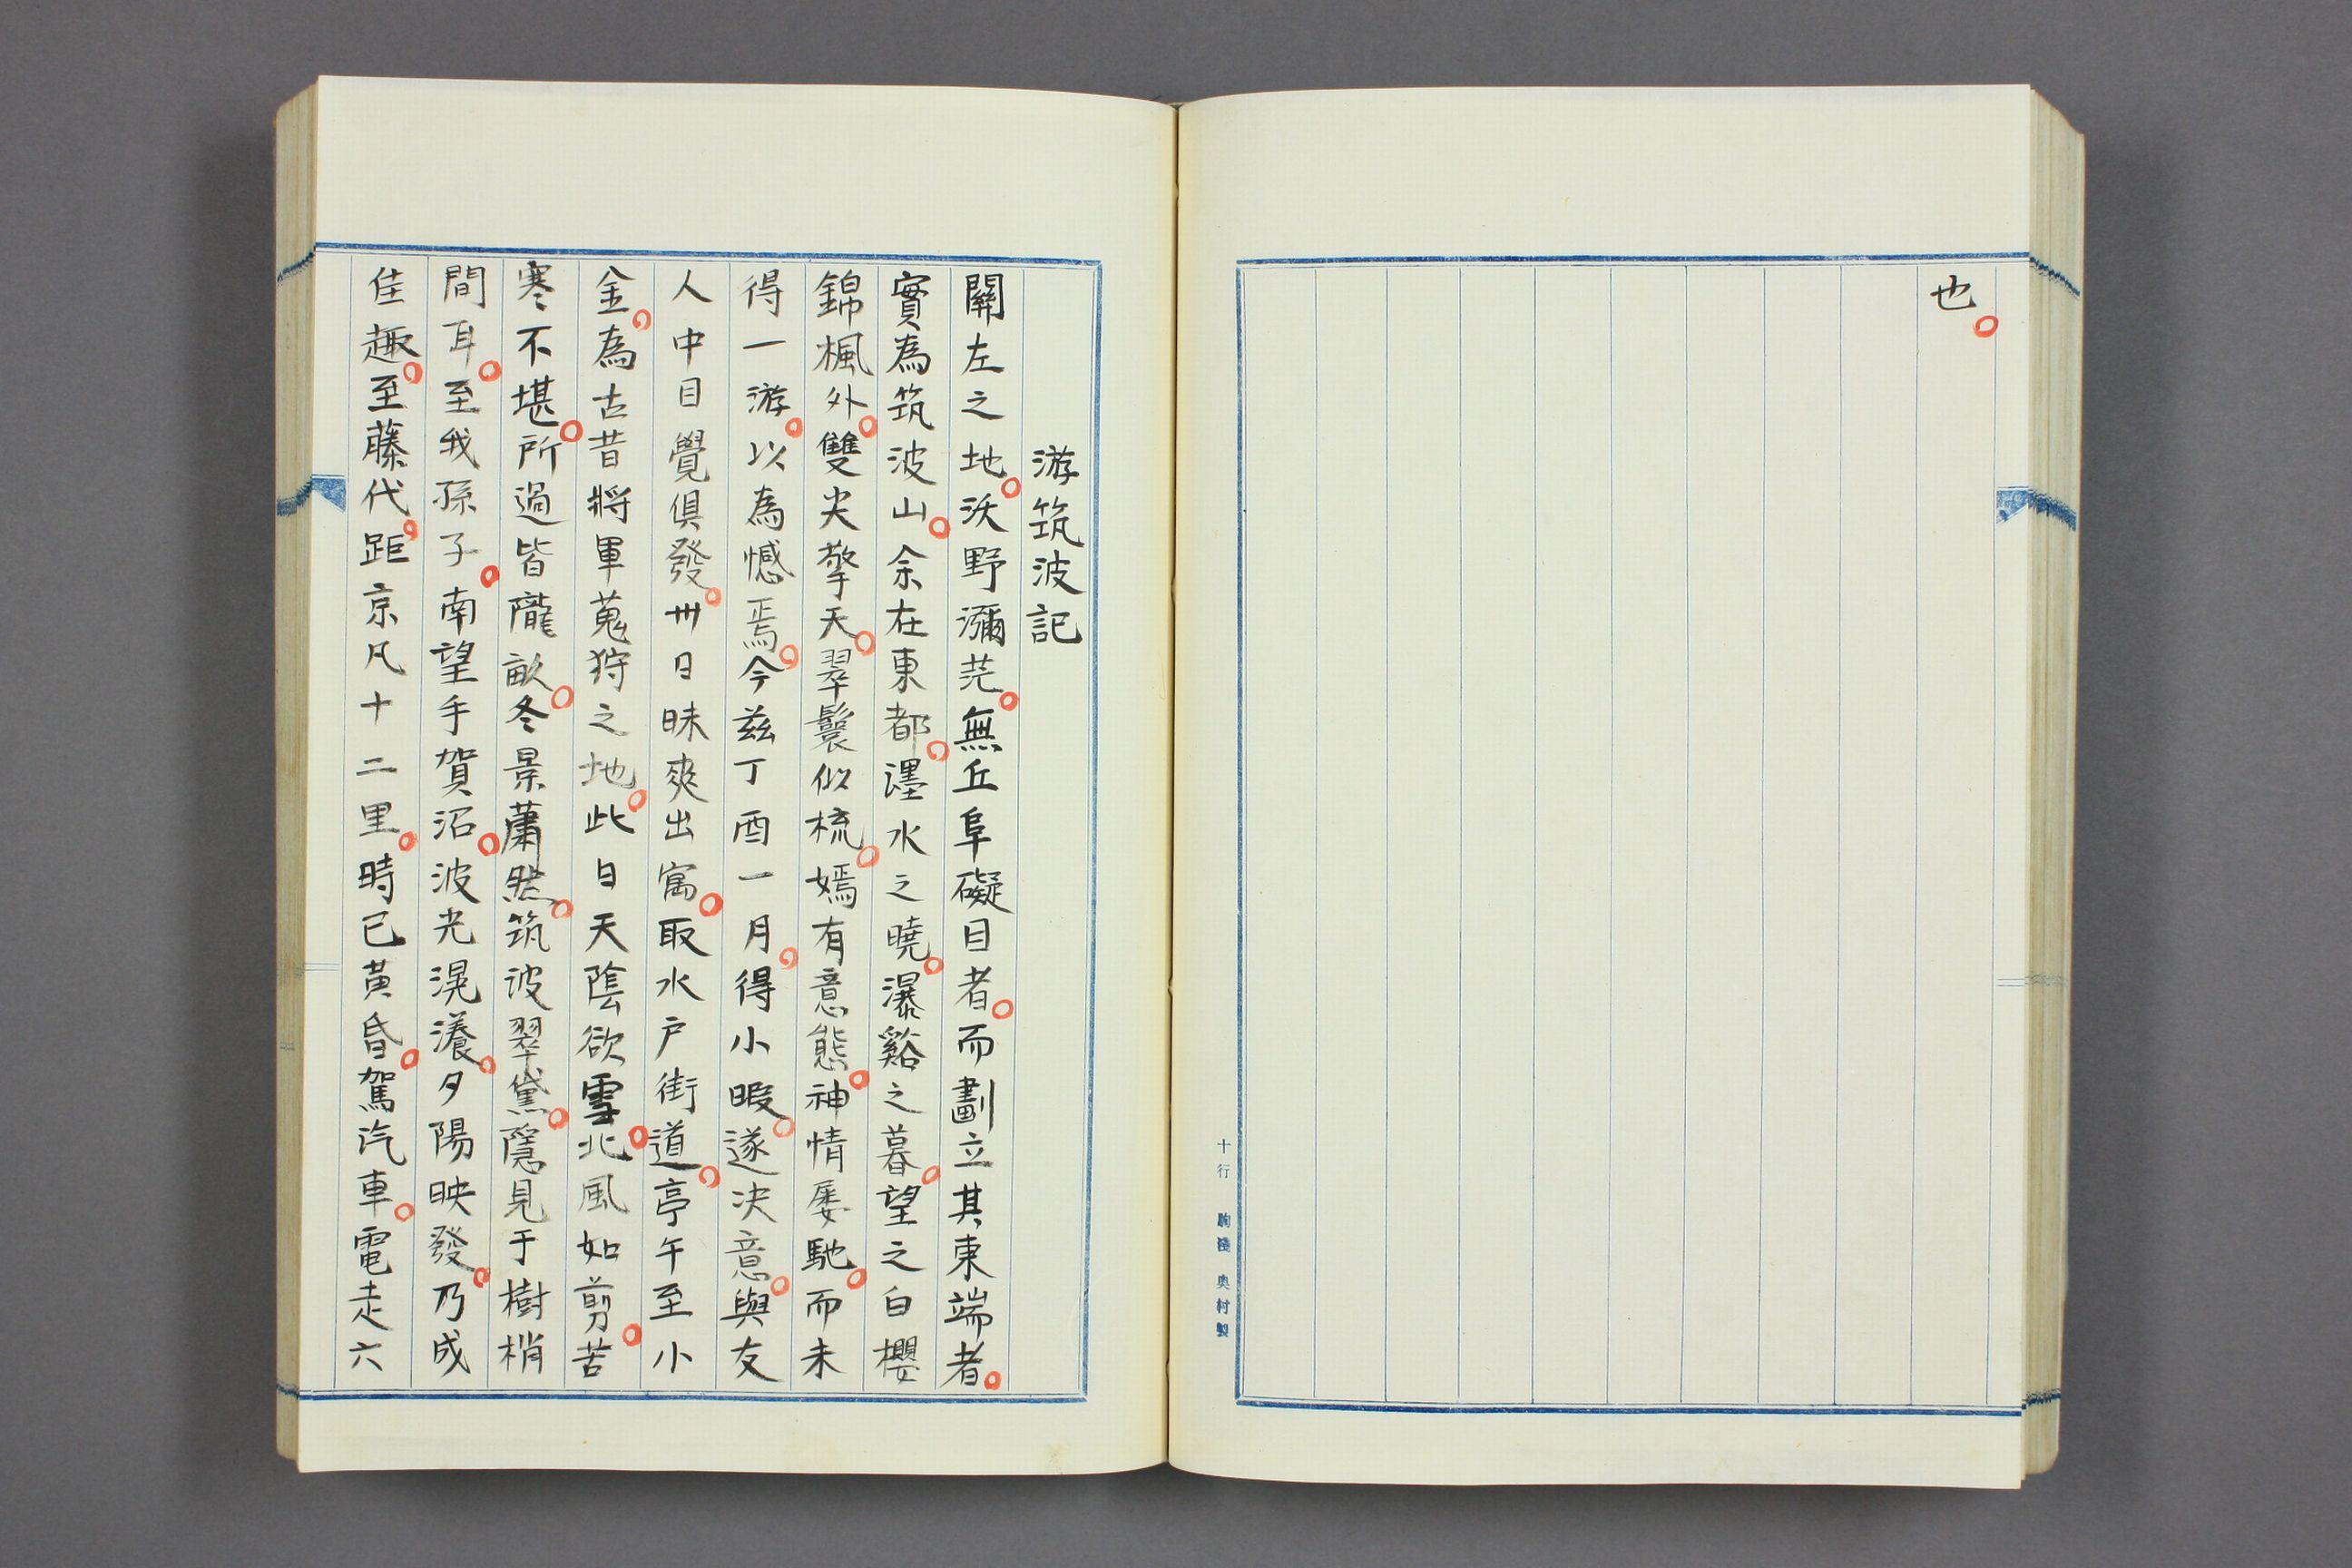 也。
十行 奥村製
游筑波記
關左之地。沃野瀰茫。無丘阜礙目者。而劃立其東端者。
實為筑波山。余在東都。墨水之曉。瀑谿之暮。望之白櫻
錦楓外。雙尖擎天。翠鬟似梳。嫣有意態。神情屡馳。而未
得一游。以為憾焉。今茲丁酉一月。得小暇。遂决意。與友
人中目覺俱發。卅日昧爽出寓。取水户街道。亭午至小
金。為古昔將軍蒐狩之地。此日天陰欲雪。北風如剪。苦
寒不堪。所過皆隴畝。冬景蕭然。筑波翠黛。隱見于樹梢
間耳。至我孫子。南望手賀沼。波光滉瀁。夕陽映發。乃成
佳趣。至藤代。距京凡十二里。時已黄昏。駕汽車。電走六